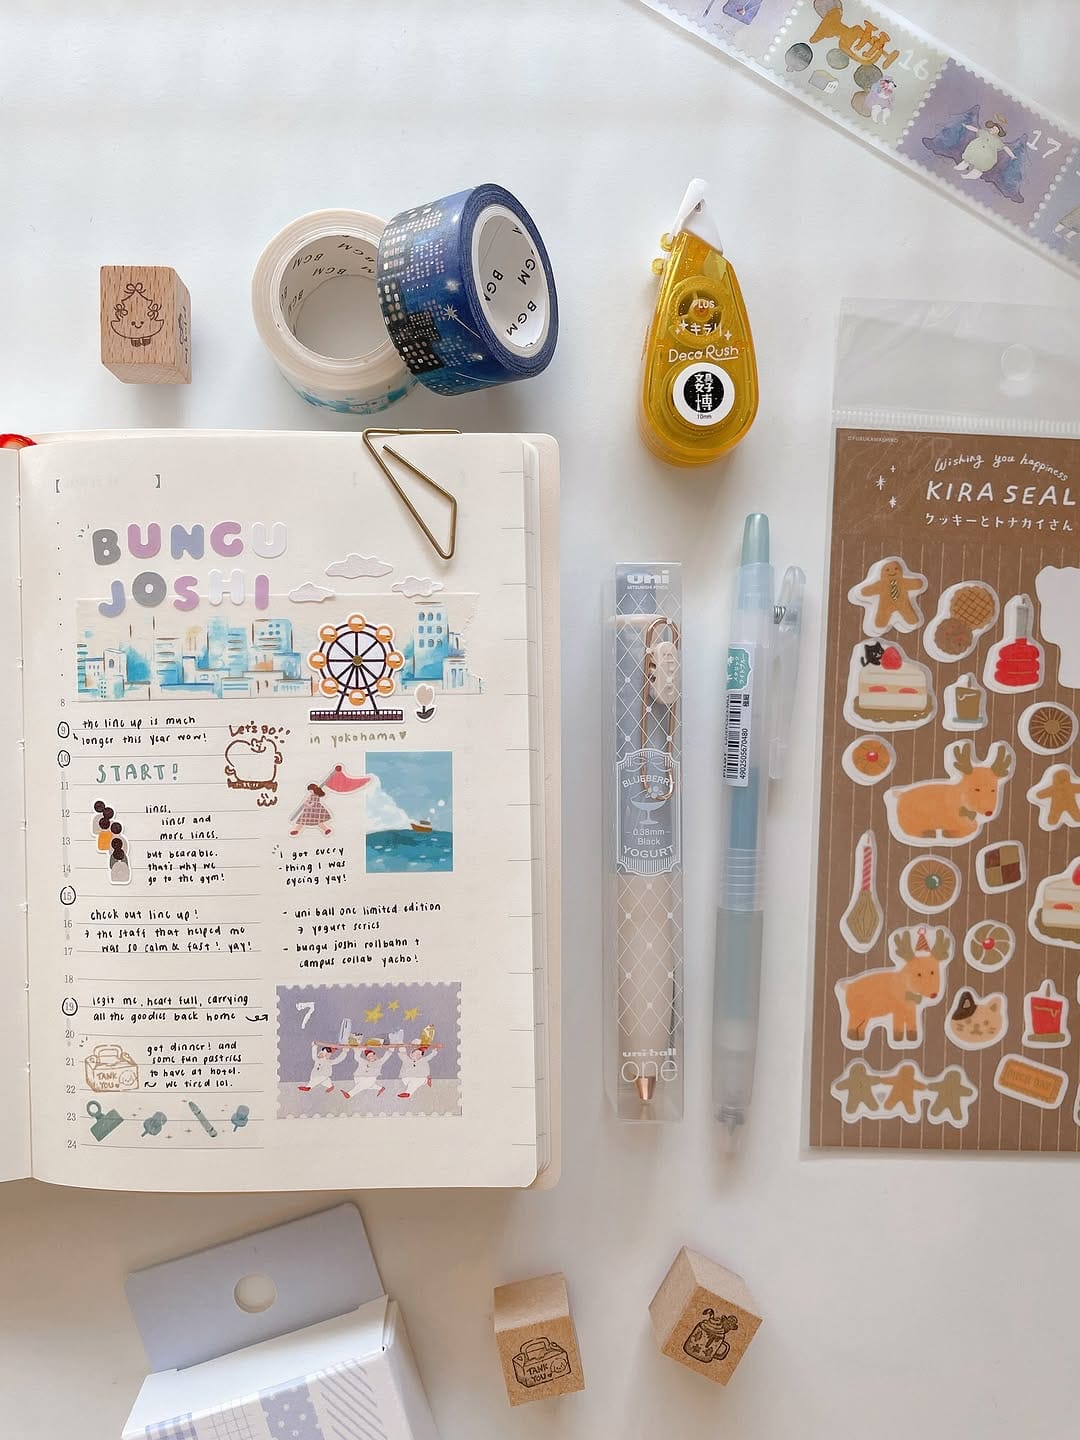 16
17
BGM
BGM
BGM
BGM
BGM
PLUS
キラリ
Deco Rush
文具
女子
博
10mm
©FURUKAWASHIKO
Wishing you happiness
KIRA SEAL
クッキーとトナカイさん
BUNGU
JOSHI
8
9
10
11
12
13
14
15
16
17
18
19
20
21
22
23
24
the line up is much
longer this year wow!
Let's go!!
in yokohama
START!
lines,
lines and
more lines.
but bearable.
that's why we
go to the gym!
I got every
-thing I was
eyeing yay!
check out line up!
→ the staff that helped me
was so calm & fast! yay!
- uni ball one limited edition
→ yogurt series
- bungu joshi rollbahn +
campus collab yacho!
legit me, heart full, carrying
all the goodies back home
7
got dinner! and
some fun pastries
to have at hotel.
we tired lol.
TANK
YOU
uni
MITSUBISHI PENCIL
BLUEBERRY
0.38mm
Black
YOGURT
uni-ball
one
4902505670480
TANK
YOU